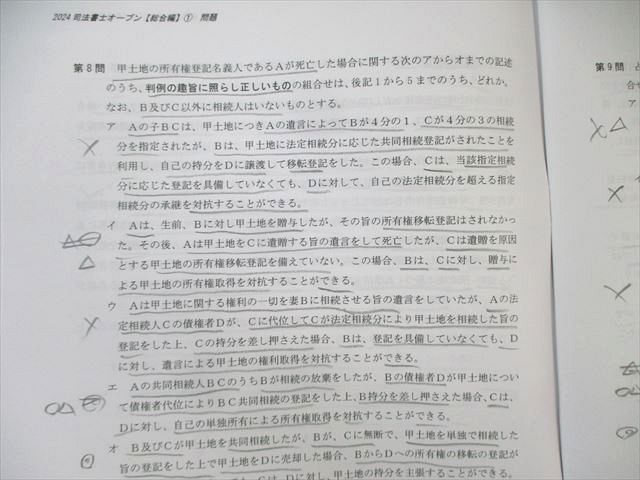 2024 司法書士オープン【総合編】① 問題
第8問 甲土地の所有権登記名義人であるAが死亡した場合に関する次のアからオまでの記述
のうち、判例の趣旨に照らし正しいものの組合せは、後記1から5までのうち、どれか。
なお、B及びC以外に相続人はいないものとする。
ア Aの子BCは、甲土地につきAの遺言によってBが4分の1、Cが4分の3の相続
分を指定されたが、Bは、甲土地に法定相続分に応じた共同相続登記がされたことを
利用し、自己の持分をDに譲渡して移転登記をした。この場合、Cは、当該指定相続
分に応じた登記を具備していなくても、Dに対して、自己の法定相続分を超える指定
相続分の承継を対抗することができる。
イ Aは、生前、Bに対し甲土地を贈与したが、その旨の所有権移転登記はされなかっ
た。その後、Aは甲土地をCに遺贈する旨の遺言をして死亡したが、Cは遺贈を原因
とする甲土地の所有権移転登記を備えていない。この場合、Bは、Cに対し、贈与に
よる甲土地の所有権の取得を対抗することができる。
ウ Aは甲土地に関する権利の一切を妻Bに相続させる旨の遺言をしていたが、Aの法
定相続人Cの債権者Dが、Cに代位してCが法定相続分により甲土地を相続した旨の
登記をした上、Cの持分を差し押さえた場合、Bは、登記を具備していなくても、D
に対し、遺言による甲土地の権利取得を対抗することができる。
エ Aの共同相続人BCのうちBが相続の放棄をしたが、Bの債権者Dが甲土地につい
て債権者代位によりBC共同相続の登記をした上、B持分を差し押さえた場合、Cは、
Dに対し、自己の単独所有による所有権取得を対抗することができる。
オ B及びCが甲土地を共同相続したが、Bが、Cに無断で、甲土地を単独で相続した
旨の登記をした上で甲土地をDに売却した場合、BからDへの所有権の移転の登記が
Cは、Dに対し、甲土地の持分を主張することができる。
第9問